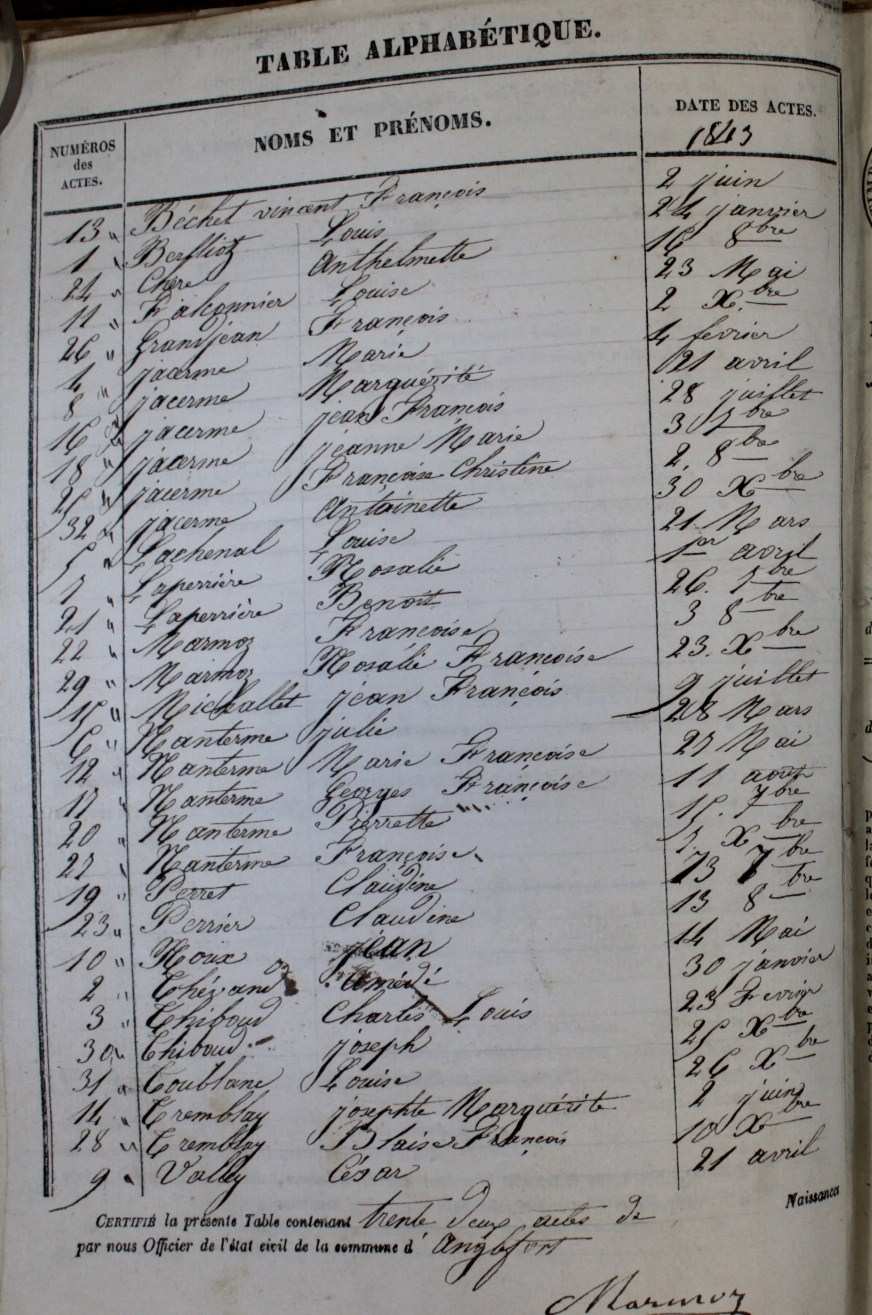 TABLE ALPHABÉTIQUE.
NUMÉROS des ACTES. NOMS ET PRÉNOMS. DATE DES ACTES.
1843
13 " Béchet vincent François 2 juin
1 " Berlioz Louis 24 janvier
24 " Chère Anthelmette 16 8bre
11 " Falconnier Louise 23 Mai
26 " Grandjean François 2 Xbre
4 " jacerme Marie 4 fevrier
8 " jacerme Marguérite 21 avril
16 " jacerme jean François 28 juillet
18 " jacerme jeanne Marie 3 7bre
25 " jacerme Françoise Christine 2 8bre
32 " jacerme Antoinette 30 Xbre
5 " Lachenal Louise 21 Mars
7 " Laperrière Rosalie 1er avril
21 " Laperrière Benoit 26. 7bre
22 " Marmoz Françoise 3 8bre
29 " Marmoz Rosalie Françoise 23. Xbre
15 " Michallet jean François 9 juillet
6 " Nanterme julie 28 Mars
12 " Nanterme Marie Françoise 27 Mai
17 " Nanterme Georges Françoise 11 août
20 " Nanterme Pierrette 15. 7bre
27 " Nanterme Françoise 7. Xbre
19 " Perret Claudine 13 7bre
23 " Perrier Claudine 13 8bre
10 " Roux jean 14 Mai
2 " amédé 30 janvier
3 " Thiboud Charles Louis 23 Fevrier
30 " Thiboud joseph 25 Xbre
31 " Toublanc Louise 26 Xbre
14 " Tremblay josephte Marguérite 2 juin
28 " Tremblay Blaise François 10 Xbre
9 " Valley César 21 avril
Naissances
CERTIFIÉ la présente Table contenant trente deux actes de
par nous Officier de l'état civil de la commune d' Anglefort
Marmoz